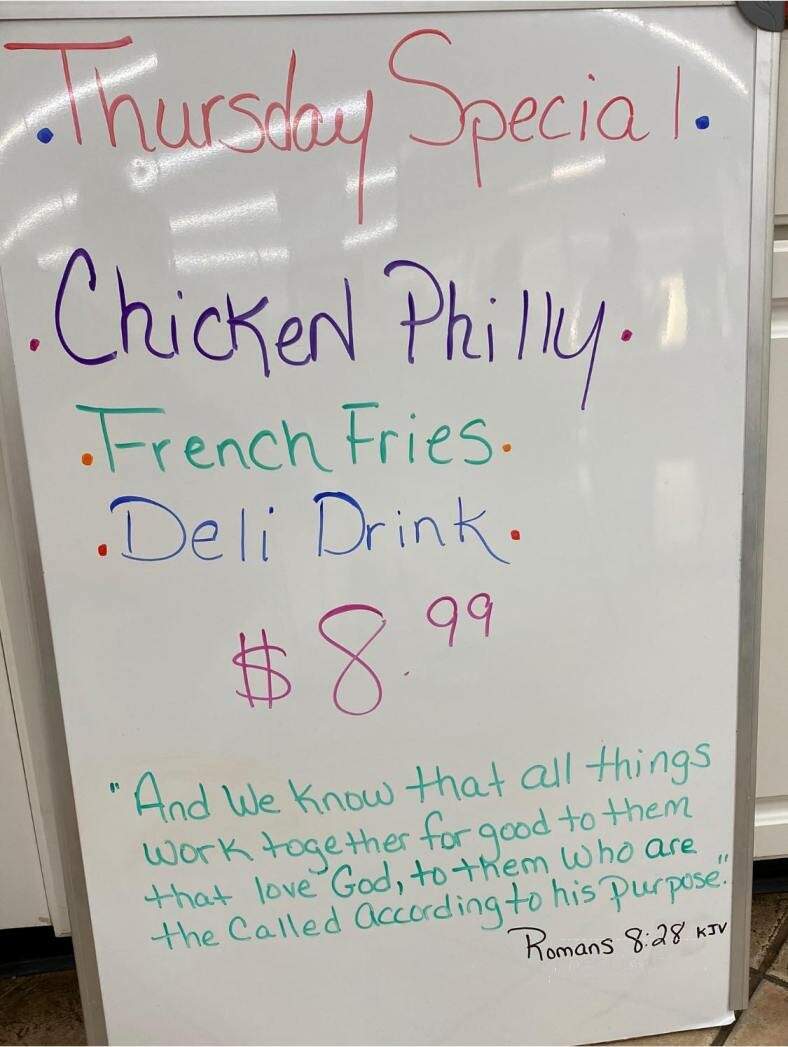 .Thursday Special.
.Chicken Philly.
.French Fries.
.Deli Drink.
$8.99
"And We Know that all things
work together for good to them
that love God, to them who are
the Called According to his Purpose."
Romans 8:28 KJV